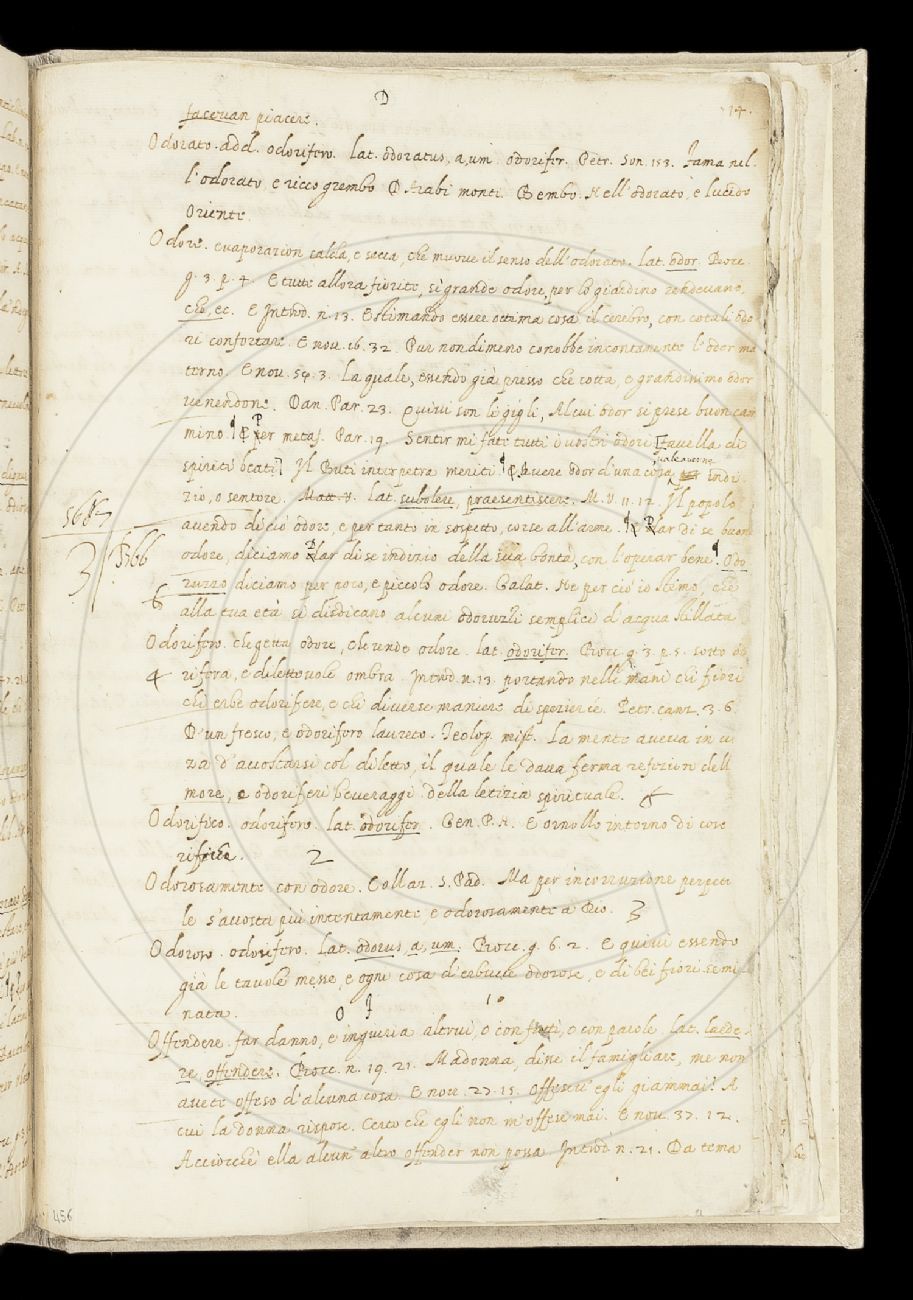 D
14.
facevan piacere.
Odorato. add. odorifero. lat. odoratus, a, um. odorifer. Petr. Son. 153. fama nel-
l'odorato, e ricco grembo D'Arabi monti. Bembo. Nell'odorato, e lucido
Oriente.
Odore. evaporazion calda, e secca, che muove il senso dell'odorato. lat. odor. Bocc.
g. 3. p. 4. E tutte allora fiorite, sì grande odore, per lo giardino rendevano,
che, ec. E Introd. n. 13. Estimando essere ottima cosa il cerebro, con cotali odo
ri confortare. E nov. 16. 32. Pur nondimeno conobbe incontanente l'odor ma
terno. E nov. 54. 3. La quale, essendo già presso che cotta, e grandissimo odor
venendone. Dan. Par. 23. Quivi son le gigli, Al cui odor si prese buon cam
mino. P per metaf. Par. 19. Sentir mi fate tutti i vostri odori [favella di
spiriti beati] Il Buti interpetra meriti. avere odor d'una cosa indi-
vale averne
zio, o sentore. lat. subolere, praesentiscere. M. V. 11. 12. Il popolo
avendo di ciò odore, e per tanto in sospetto, corse all'arme. Dar di se buon
5687
odore, diciamo Dar di se indizio della sua bontà, con l'operar bene. Odo
3 5766
ruzzo diciamo per poco, e piccolo odore. Galat. Ne per ciò io stimo, che
6
alla tua età si disdicano alcuni odoruzzi semplici d'acqua stillata
Odorifero. che getta odore, che rende odore. lat. odorifer. Bocc. g. 3. p. 5. sotto odo
4 rifera, e dilettevole ombra. Introd. n. 13. portando nelle mani chi fiori
chi erbe odorifere, e chi diverse maniere di spezierie. Petr. canz. 3. 6.
D'un fresco, e odorifero laureto. Teolog. mist. La mente aveva in u
sa d'accostarsi col diletto, il quale le dava ferma refezion dell
more, e odoriferi beveraggi della letizia spirituale.
Odorifico. odorifero. lat. odorifer. Gen. P. N. E ornollo intorno di cose
rifiche. 2
Odorosamente con odore. Collaz. S. Pad. Ma per incorruzione perpetu
le s'accosta più intentamente, e odorosamente a Dio. 3
Odoroso. odorifero. lat. odorus, a, um. Bocc. g. 6. 2. E quivi essendo
già le tavole messe, e ogni cosa d'erbucce odorose, e di bei fiori semi
nata.
Offendere. far danno, e ingiuria altrui, o con fatti, o con parole. lat. laede-
re, offendere. Bocc. n. 19. 21. Madonna, disse il famigliare, me non
avete offeso d'alcuna cosa. E nov. 27. 15. Offesevi egli giammai? A
cui la donna rispose. Certo che egli non m'offese mai. E nov. 37. 12.
Acciocchè ella alcun' altro offender non possa Introd. n. 21. Da tema
456